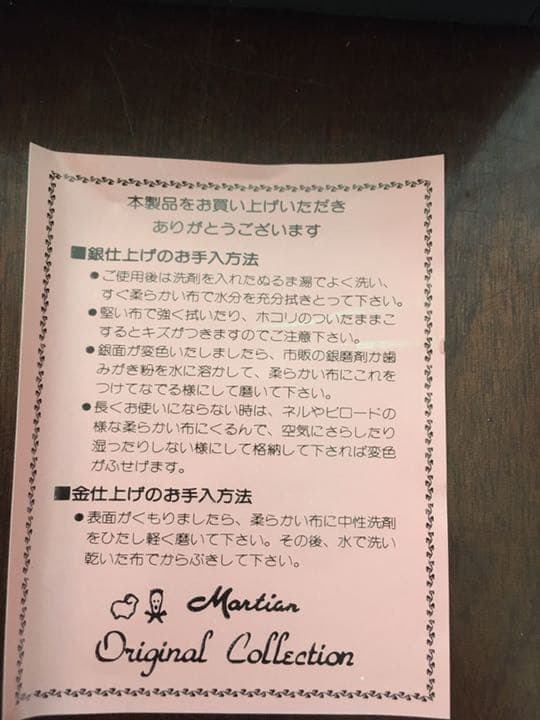 本製品をお買い上げいただき
ありがとうございます
■銀仕上げのお手入方法
●ご使用後は洗剤を入れたぬるま湯でよく洗い、
すぐ柔らかい布で水分を充分拭きとって下さい。
●堅い布で強く拭いたり、ホコリのついたままこ
するとキズがつきますのでご注意下さい。
●銀面が変色いたしましたら、市販の銀磨剤か歯
みがき粉を水に溶かして、柔らかい布にこれを
つけてなでる様にして磨いて下さい。
●長くお使いにならない時は、ネルやビロードの
様な柔らかい布にくるんで、空気にさらしたり
湿ったりしない様にして格納して下されば変色
がふせげます。
■金仕上げのお手入方法
●表面がくもりましたら、柔らかい布に中性洗剤
をひたし軽く磨いて下さい。その後、水で洗い
乾いた布でからぶきして下さい。
Martian
Original Collection